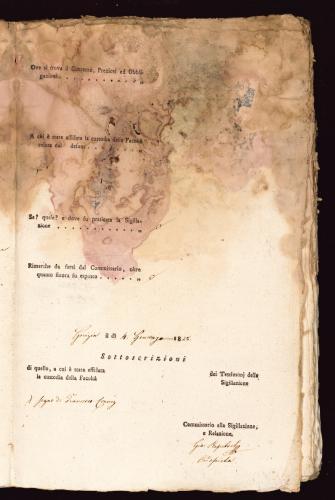 Ove si trova il Contante, Preziosi ed Obbli-
gazioni . . . . . . . . . . „
A chi è stata affidata la custodia della Facoltà
relitta dal defunto . . . . . . . „
Se? quale? e dove fu praticata la Sigilla-
zione . . . . . . . . . . . „
Rimarche da farsi dal Commissario, oltre
quanto finora fu esposto . . . . . „
li 4. 18
Sottoscrizioni
di quello, a cui è stata affidata
la custodia della Facoltà
dei Testimonj della
Sigilazione
segno di Francesco
Commissario alla Sigilazione,
e Relazione,